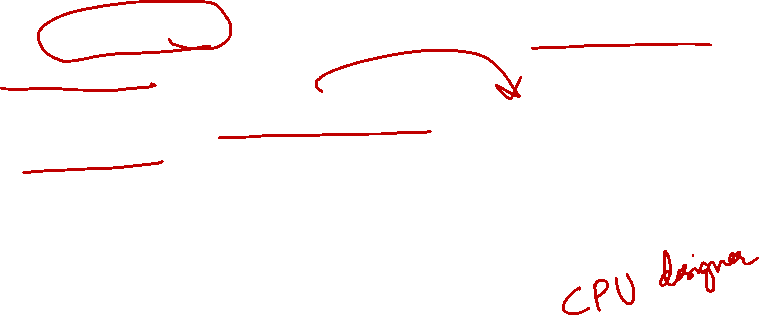 CPU designer